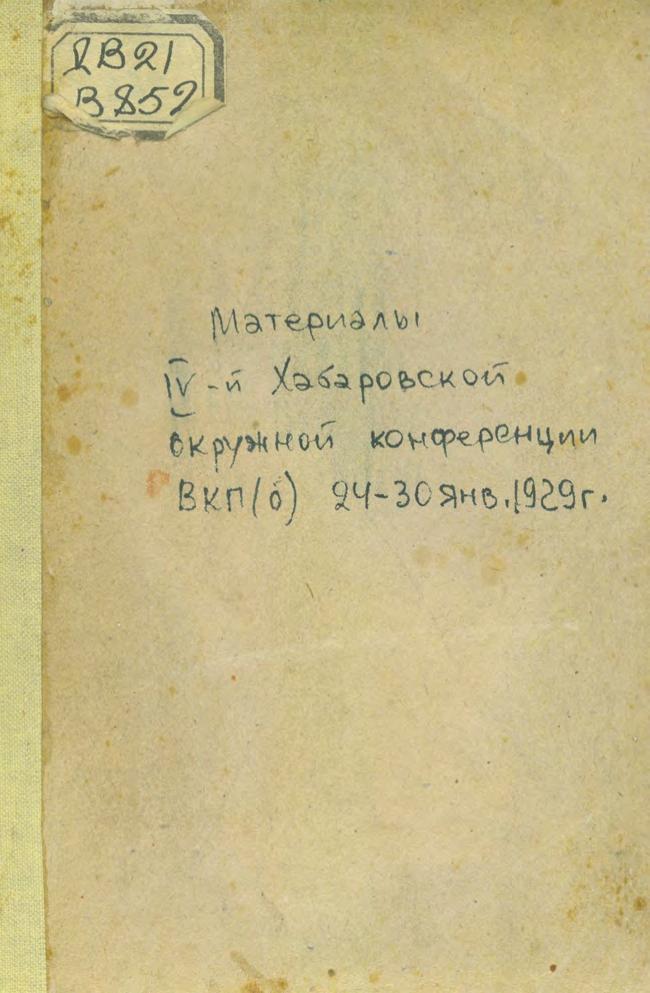 2В21
В852
Материалы
IV-й Хабаровской
окружной конференции
ВКП(б) 24-30 янв. 1929г.